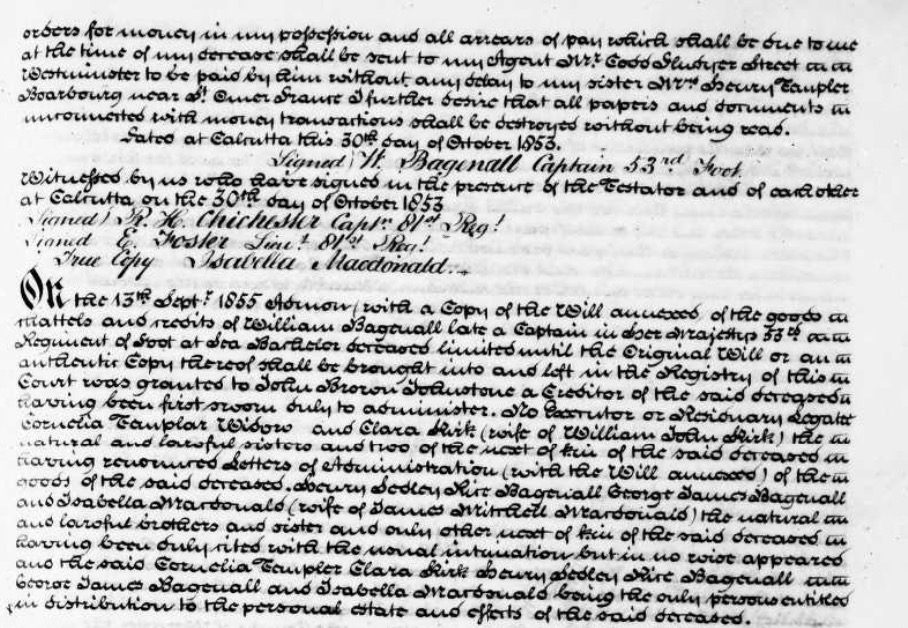 orders for money in my possession and all arrears of pay which shall be due to me
at the time of my decease shall be sent to my Agent Mr. Codd Fludyer Street
Westminster to be paid by him without any delay to my sister Mrs. Henry Templer
Boarbourg near St. Omer France I further desire that all papers and documents
unconnected with money transactions shall be destroyed without being read.
Dated at Calcutta this 30th day of October 1853.
Signed/ W. Bagenall Captain 53rd Foot
Witnessed by us who have signed in the presence of the Testator and of each other
at Calcutta on the 30th day of October 1853
Signed/ R. H. Chichester Captn. 81st Regt.
Signed E. Foster Lieut. 81st Regt.
True Copy Isabella Macdonald.
On the 13th Septr. 1855 Admon (with a Copy of the Will annexed) of the goods
chattels and credits of William Bagenall late a Captain in Her Majestys 53rd
Regiment of Foot at Sea Bachelor deceased limited until the Original Will or an
authentic Copy thereof shall be brought into and left in the Registry of this
Court was granted to John Brown Johnstone a Creditor of the said deceased
having been first sworn duly to administer. No Executor or Residuary Legatee
Cornelia Templar Widow and Clara Kirk (wife of William John Kirk) the
natural and lawful sisters and two of the next of kin of the said deceased
having renounced Letters of Administration (with the Will annexed) of the
goods of the said deceased. Henry Sedley Rice Bagenall George James Bagenall
and Isabella Macdonald (wife of James Mitchell Macdonald) the natural
and lawful brothers and sister and only other next of kin of the said deceased
having been duly cited with the usual intimation but in no wise appeared
and the said Cornelia Templer Clara Kirk Henry Sedley Rice Bagenall
George James Bagenall and Isabella Macdonald being the only persons entitled
in distribution to the personal estate and effects of the said deceased.